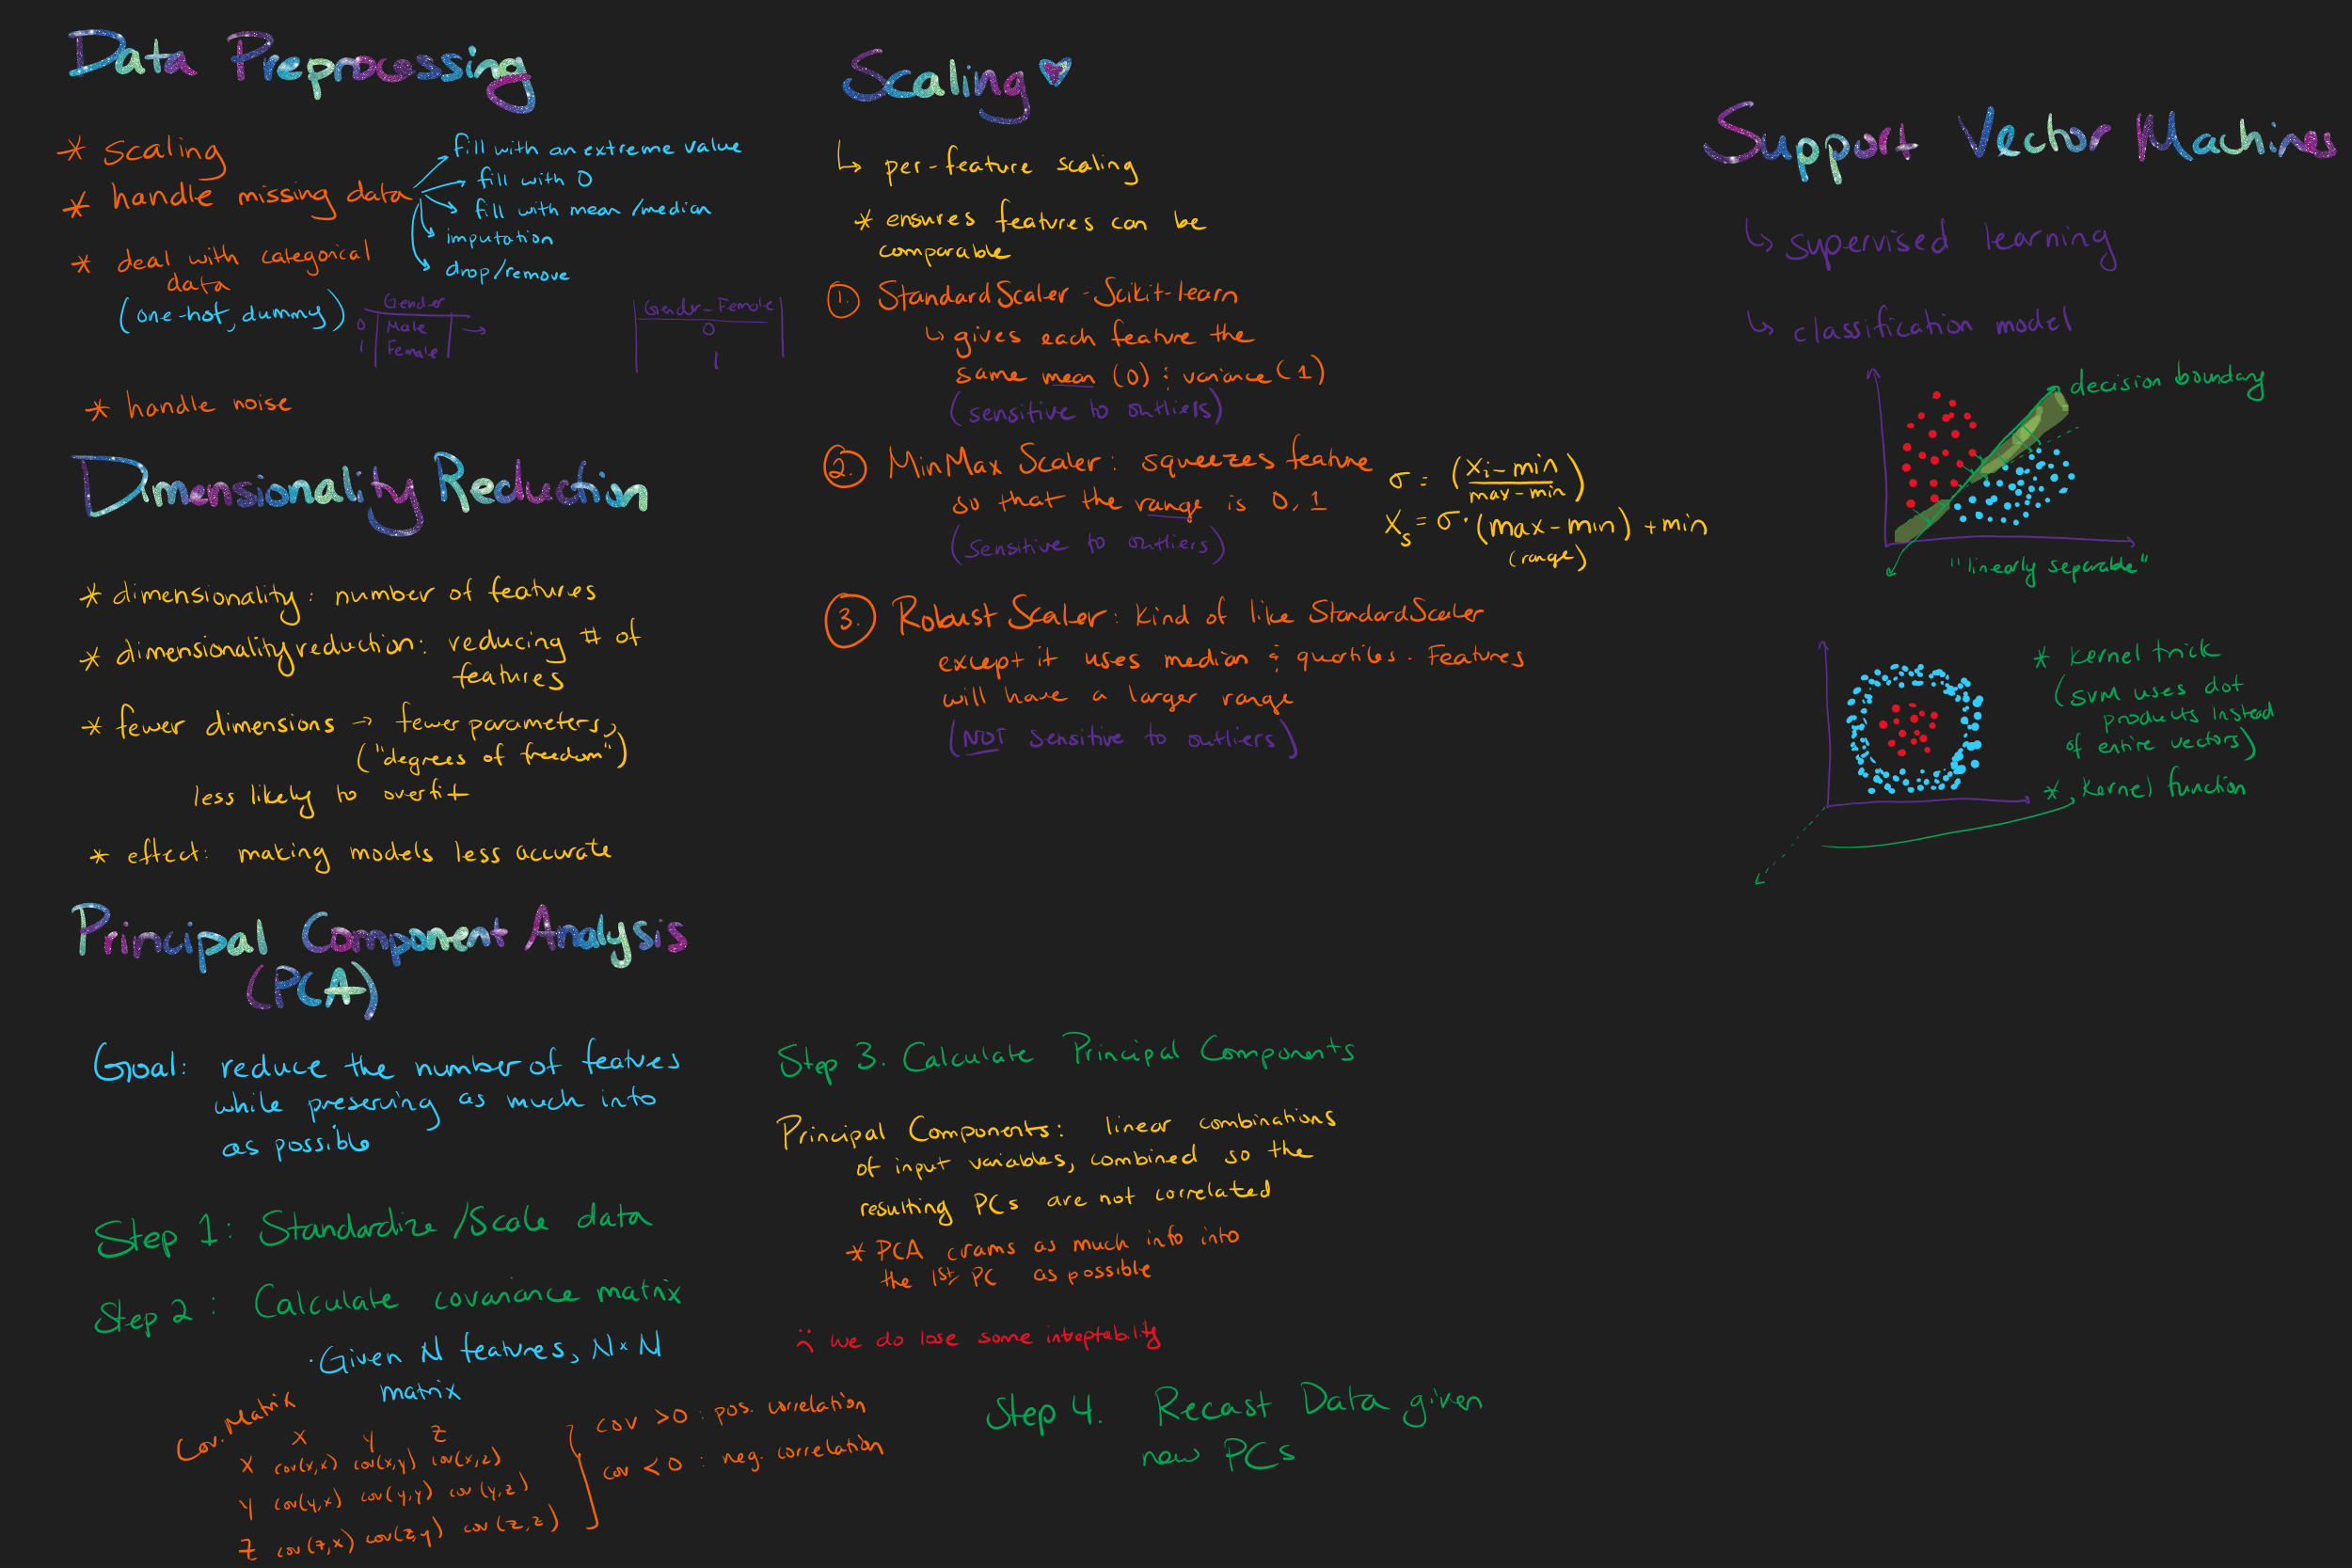 Data Preprocessing
* scaling
* handle missing data
fill with an extreme value
fill with 0
fill with mean/median
imputation
drop/remove
* deal with categorical
data
(one-hot, dummy)
Gender
0 Male
1 Female
Gender-Female
0
1
* handle noise
Dimensionality Reduction
* dimensionality: number of features
* dimensionality reduction: reducing # of
features
* fewer dimensions → fewer parameters,
("degrees of freedom")
less likely to overfit
* effect: making models less accurate
Principal Component Analysis
(PCA)
Goal: reduce the number of featues
while preserving as much into
as possible
Step 1: Standardize/Scale data
Step 2: Calculate covariance matrix
· Given N features, N×N
matrix
Cov. Matrix
X Y Z
X cov(x,x) cov(x,y) cov(x,z)
Y cov(y,x) cov(y,y) cov(y,z)
Z cov(z,x) cov(z,y) cov(z,z)
cov >0: pos. correlation
cov <0: neg. correlation
Scaling
↳ per-feature scaling
* ensures features can be
comparable
1. StandardScaler - Scikit-learn
↳ gives each feature the
same mean (0) & variance (1)
(sensitive to outliers)
2. MinMax Scaler: squeezes feature
so that the range is 0, 1
(sensitive to outliers)
σ = (xi - min / max - min)
Xs = σ · (max - min) + min
(range)
3. Robust Scaler: kind of like StandardScaler
except it uses median & quartiles. Features
will have a larger range
(NOT sensitive to outliers)
Step 3. Calculate Principal Components
Principal Components: linear combinations
of input variables, combined so the
resulting PCs are not correlated
* PCA crams as much info into
the 1st PC as possible
:( we do lose some inteptability
Step 4. Recast Data given
new PCs
Support Vector Machines
↳ supervised learning
↳ classification model
decision boundary
"linearly separable"
* kernel trick
(SVM uses dot
products instead
of entire vectors)
* kernel function